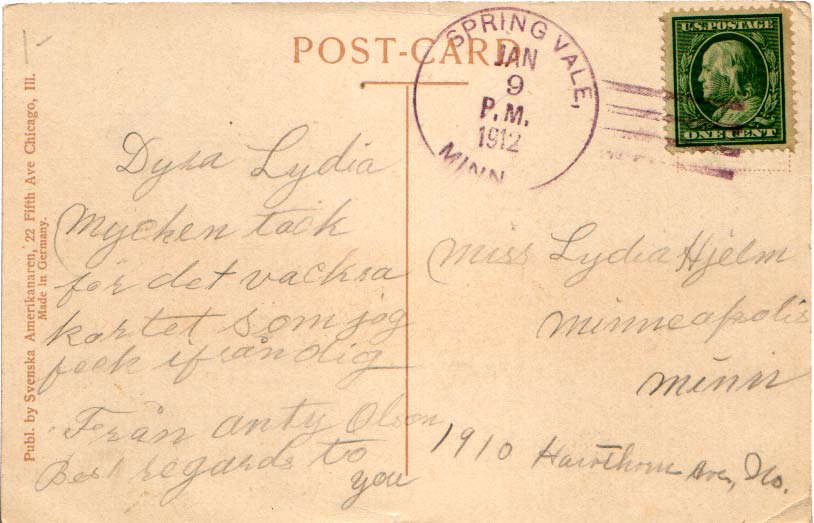 1-
POST-CARD
SPRING VALE,
JAN
9
P.M.
1912
MINN
U.S. POSTAGE
ONE CENT
Publ. by Svenska Amerikanaren, 22 Fifth Ave Chicago, Ill.
Made in Germany.
Dyra Lydia
Mycken tack
för det vackra
kortet som jag
feck ifrån dig
Från anty Olson
Best regards to
you
Miss Lydia Hjelm
Minneapolis
Minn
1910 Hawthorn Ave, No.